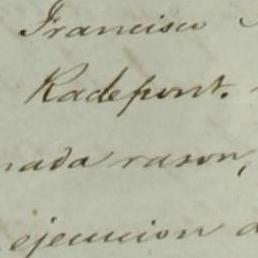 Francisco
Radepont.
nada rason,
ejecucion